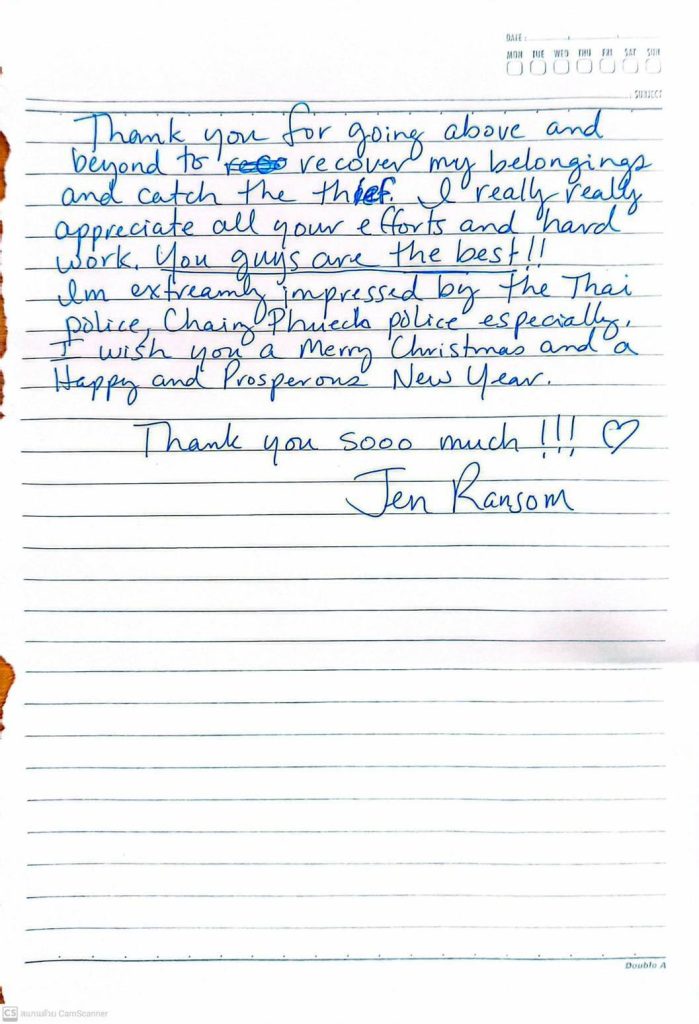 DATE:
MON TUE WED THU FRI SAT SUN
SUBJECT
Thank you for going above and
beyond to recover my belongings
and catch the thief. I really really
appreciate all your efforts and hard
work. You guys are the best!!
Im extreamly impressed by the Thai
police, Chaing Phueck police especially.
I wish you a Merry Christmas and a
Happy and Prosperous New Year.
Thank you sooo much !!! ♡
Jen Ransom
Double A
CS สแกนด้วย CamScanner